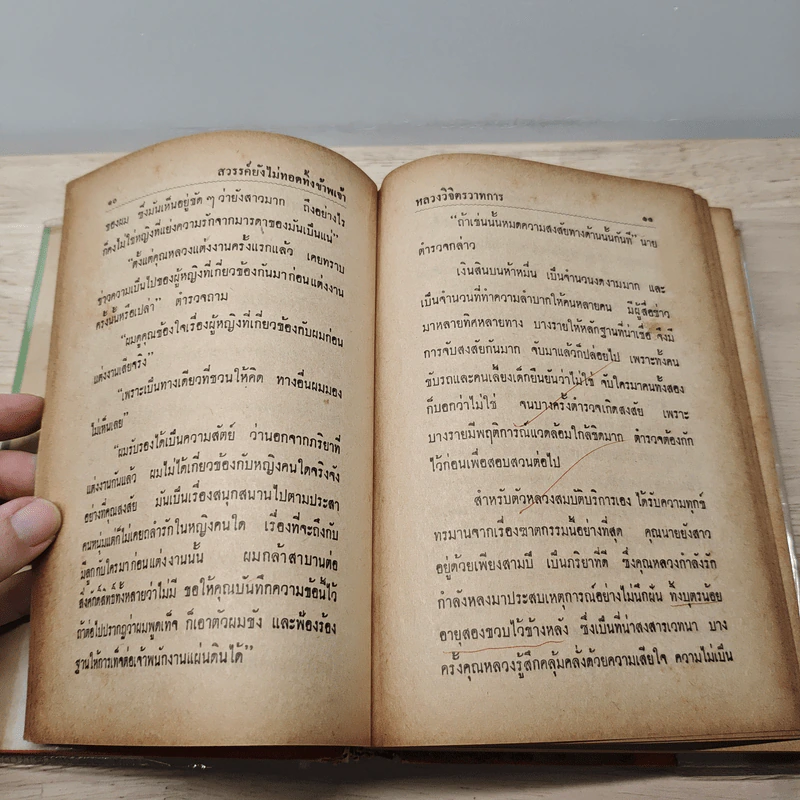 ๑๐
สวรรค์ยังไม่ทอดทิ้งข้าพเจ้า
ของผม ซึ่งมันเห็นอยู่ชัด ๆ ว่ายังสาวมาก ถึงอย่างไร
ก็คงไม่ใช่หญิงที่แย่งความรักจากมารดาของมันเป็นแน่"
"ตั้งแต่คุณหลวงแต่งงานครั้งแรกแล้ว เคยทราบ
ข่าวความเป็นไปของผู้หญิงที่เกี่ยวข้องกันมาก่อนแต่งงาน
ครั้งนั้นหรือเปล่า" ตำรวจถาม
"ผมดูคุณข้องใจเรื่องผู้หญิงที่เกี่ยวข้องกับผมก่อน
แต่งงานเสียจริง"
"เพราะเป็นทางเดียวที่ชวนให้คิด ทางอื่นผมมอง
ไม่เห็นเลย"
"ผมรับรองได้เป็นความสัตย์ ว่านอกจากภริยาที่
แต่งงานกันแล้ว ผมไม่ได้เกี่ยวข้องกับหญิงคนใดจริงจัง
อย่างที่คุณสงสัย มันเป็นเรื่องสนุกสนานไปตามประสา
คนหนุ่มแต่ก็ไม่เคยถลำรักในหญิงคนใด เรื่องที่จะถึงกับ
มีลูกกับใครมาก่อนแต่งงานนั้น ผมกล้าสาบานต่อ
สิ่งศักดิ์สิทธิ์ทั้งหลายว่าไม่มี ขอให้คุณบันทึกความข้อนี้ไว้
ถ้าต่อไปปรากฏว่าผมพูดเท็จ ก็เอาตัวผมขัง และฟ้องร้อง
ฐานให้การเท็จต่อเจ้าพนักงานแผ่นดินได้"
หลวงวิจิตรวาทการ
๑๑
"ถ้าเช่นนั้นหมดความสงสัยทางด้านนั้นกันที" นาย
ตำรวจกล่าว
เงินสินบนห้าหมื่น เป็นจำนวนงดงามมาก และ
เป็นจำนวนที่ทำความลำบากให้คนหลายคน มีผู้สื่อข่าว
มาหลายทิศหลายทาง บางรายให้หลักฐานที่น่าเชื่อ จึงมี
การจับสงสัยกันมาก จับมาแล้วก็ปล่อยไป เพราะทั้งคน
ขับรถและคนเลี้ยงเด็กยืนยันว่าไม่ใช่ จับใครมาคนทั้งสอง
ก็บอกว่าไม่ใช่ จนบางครั้งตำรวจเกิดสงสัย เพราะ
บางรายมีพฤติการณ์แวดล้อมใกล้ชิดมาก ตำรวจต้องกัก
ไว้ก่อนเพื่อสอบสวนต่อไป
สำหรับตัวหลวงสมบัติบริการเอง ได้รับความทุกข์
ทรมานจากเรื่องฆาตกรรมนี้อย่างที่สุด คุณนายยังสาว
อยู่ด้วยเพียงสามปี เป็นภริยาที่ดี ซึ่งคุณหลวงกำลังรัก
กำลังหลงมาประสบเหตุการณ์อย่างไม่นึกฝัน ทิ้งบุตรน้อย
อายุสองขวบไว้ข้างหลัง ซึ่งเป็นที่น่าสงสารเวทนา บาง
ครั้งคุณหลวงรู้สึกคลุ้มคลั่งด้วยความเสียใจ ความไม่เป็น